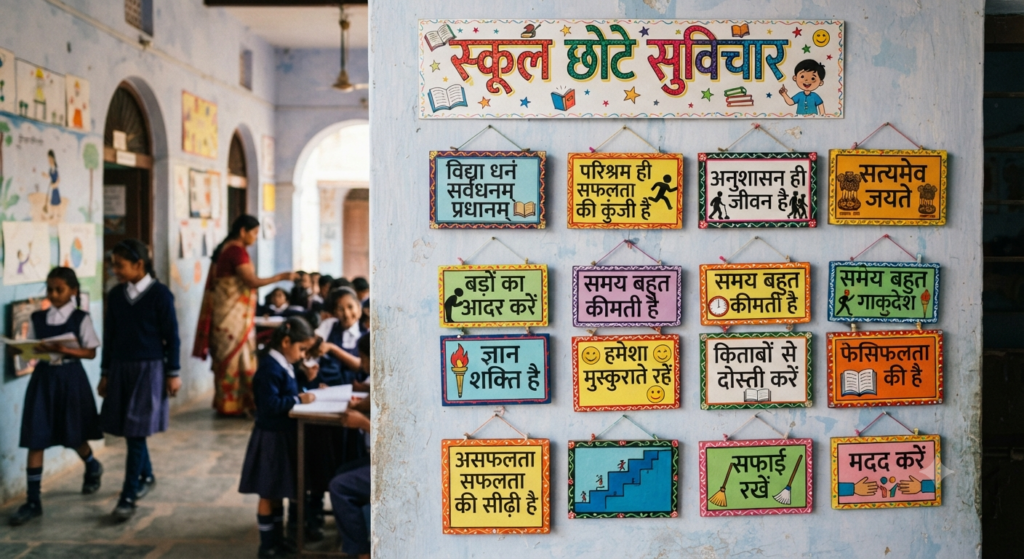 स्कूल छोटे सुविचार
विद्या धनं
सर्वधनम्
प्रधानम्
परिश्रम ही
सफलता
की कुंजी है
अनुशासन ही
जीवन है
सत्यमेव
जयते
बड़ों का
आदर करें
समय बहुत
कीमती है
समय बहुत
कीमती है
समेय बहुत
गाकुदेश
ज्ञान
शक्ति है
हमेशा
मुस्कुराते रहें
किताबों से
दोस्ती करें
फेसिफलता
की है
असफलता
सफलता
की सीढ़ी है
सफाई
रखें
मदद करें